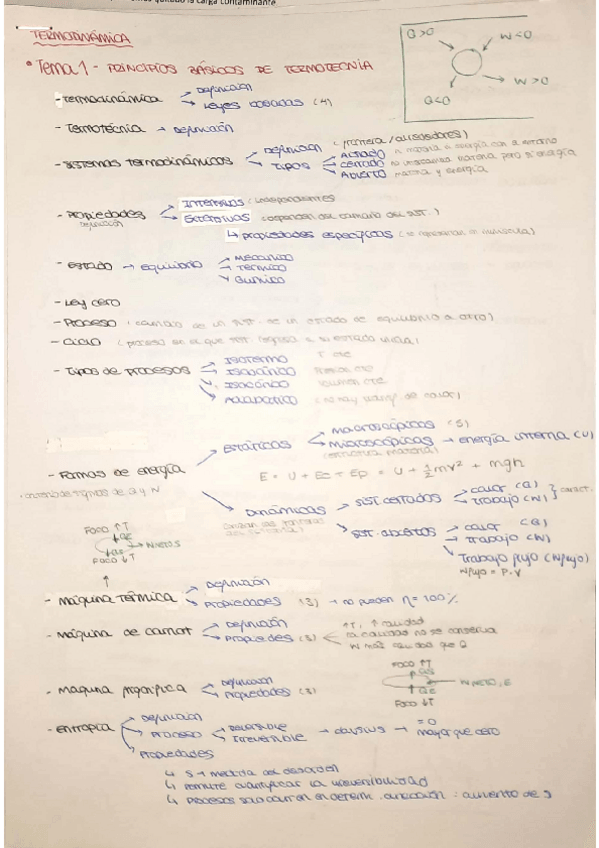 la carga contaminante
TERMODINÁMICA
Q>0
W<0
W>0
Q<0
* Tema 1 - PRINCIPIOS BÁSICOS DE TERMOTECNIA
- Termodinámica → Definición
→ Leyes basadas (4)
- Termotecnia → Definición
- Sistemas termodinámicos → Definición (frontera / alrededores)
→ Tipos → Aislado ni materia ni energía con el entorno
→ Cerrado no intercambia materia pero sí energía
→ Abierto materia y energía
- Propiedades → Intensivas (independientes
Definición
→ Extensivas (dependen del tamaño del sist.)
↳ propiedades específicas (se representan en minúscula)
- Estado → equilibrio → Mecánico
→ Térmico
→ Químico
- Ley cero
- Proceso (cambio de un sist. de un estado de equilibrio a otro)
- Ciclo (proceso en el que sist. regresa a su estado inicial)
- Tipos de procesos → Isotermo T cte
→ Isobárico Presión cte
→ Isocórico Volumen cte
→ Adiabático (no hay transf. de calor)
- Formas de energía → Estáticas → Macroscópicas (S)
→ Microscópicas → energía interna (U)
(estructura material)
E = U + Ec + Ep = U + ½mv² + mgh
Q y W
→ Dinámicas → sist. cerrados → calor (Q)
→ trabajo (W)
→ sist. abiertos → calor (Q)
→ trabajo (W)
→ Trabajo flujo (Wflujo)
Wflujo = P·V
Foco ↑T
W NETO, S
Foco ↓T
- Máquina térmica → Definición
→ Propiedades (3) → no pueden η = 100%
- Máquina de Carnot → Definición
→ Propiedades (3) ↑T, ↑ calidad
la calidad no se conserva
W más calidad que Q
- Máquina frigorífica → Definición
→ Propiedades (3)
Foco ↑T
W NETO, E
Foco ↓T
- Entropía → Definición
→ Proceso → Reversible
→ Irreversible → clausius → = 0
→ mayor que cero
→ Propiedades
↳ S → medida del desorden
↳ permite cuantificar la irreversibilidad
↳ Procesos solo ocurren en determ. dirección : aumento de S